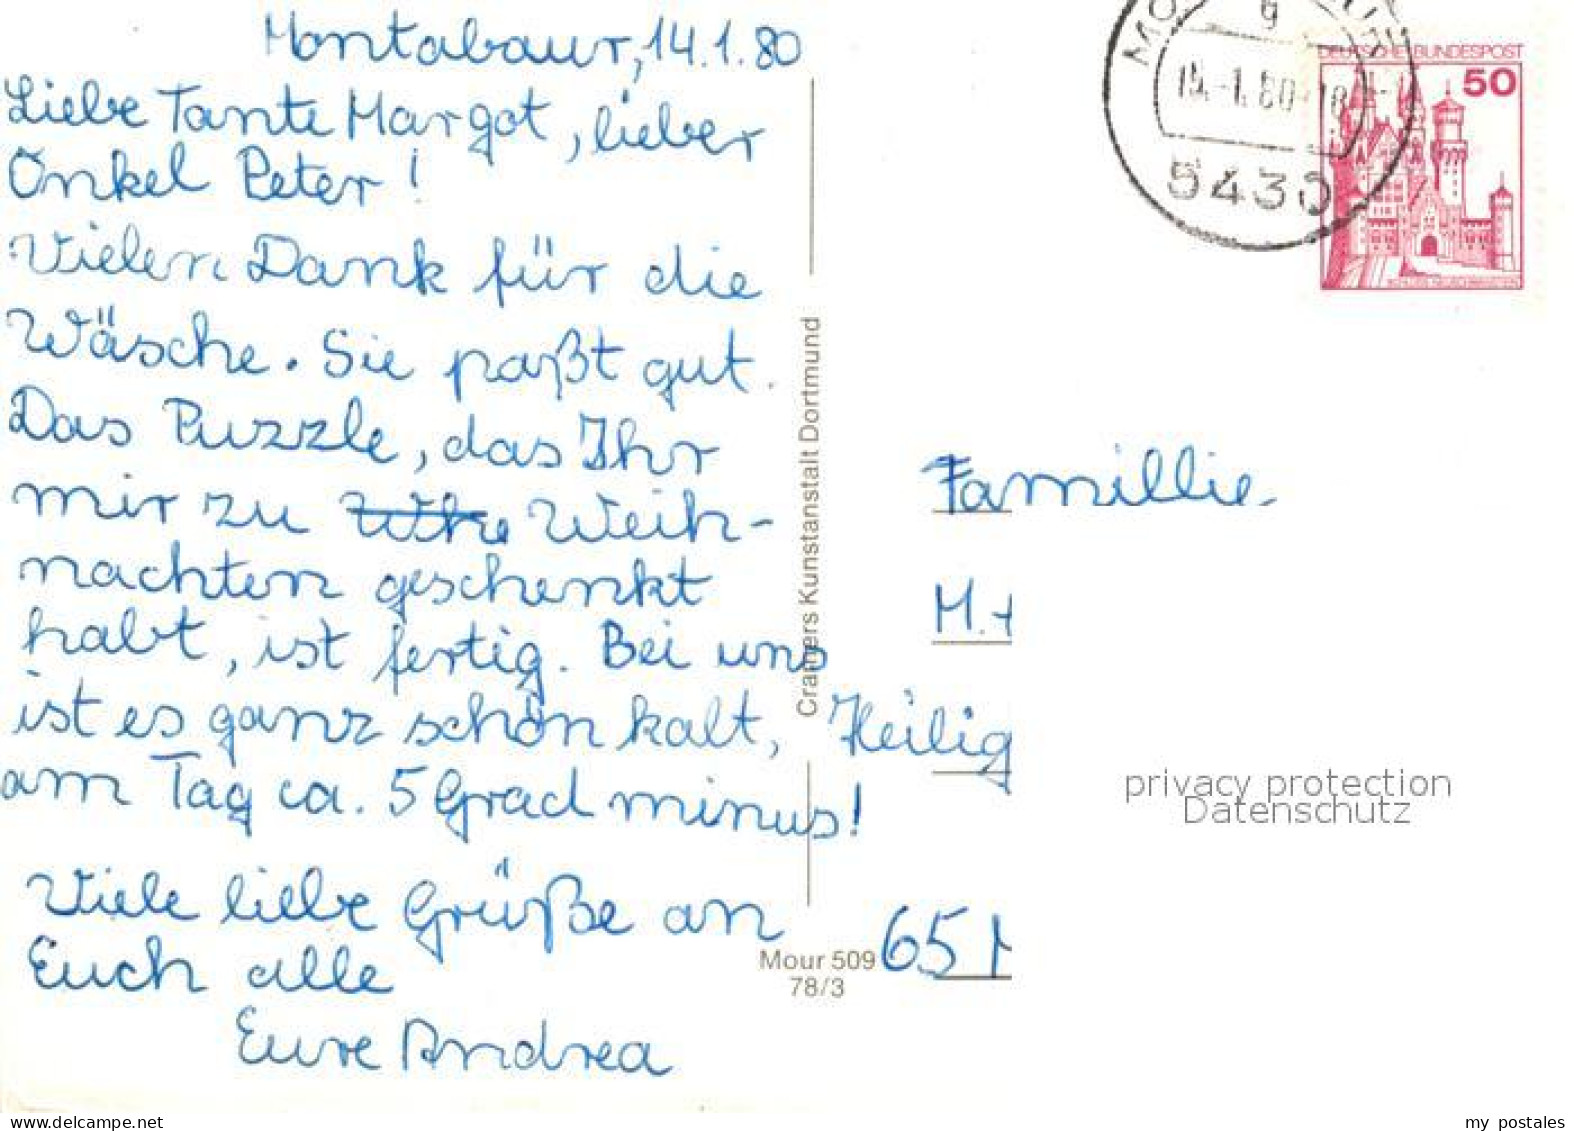 Montabaur, 14.1.80
Liebe Tante Margot, lieber
Onkel Peter!
Vielen Dank für die
Wäsche. Sie paßt gut.
Das Puzzle, das Ihr
mir zu Weih-
nachten geschenkt
habt, ist fertig. Bei uns
ist es ganz schön kalt,
am Tag ca. 5 Grad minus!
Viele liebe Grüße an
Euch alle
Eure Andrea
Cramers Kunstanstalt Dortmund
Mour 509
78/3
5430
DEUTSCHE BUNDESPOST
50
Famillie
M.
Heilig
65
privacy protection
Datenschutz
www.delcampe.net
my_postales